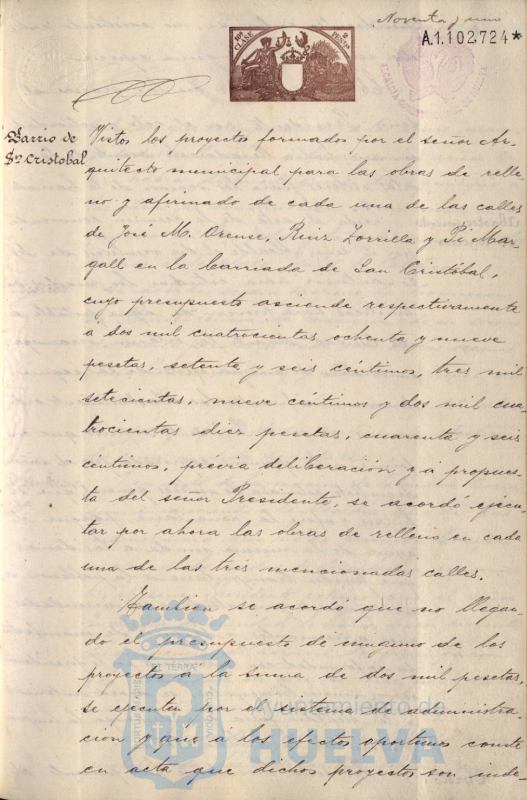 Noventa y uno
A.1.102.724*
10ª CLASE
2 PESETAS
Barrio de
Sn. Cristobal
Vistos los proyectos formados por el señor Ar-
quitecto municipal para las obras de relle-
no y afirmado de cada una de las calles
de José M. Orense, Ruiz Zorrilla y Pi Mar-
gall en la barriada de San Cristóbal,
cuyo presupuesto asciende respectivamente
á dos mil cuatrocientas ochenta y nueve
pesetas, setenta y seis céntimos, tres mil
setecientas, nueve céntimos y dos mil cua
trocientas diez pesetas, cuarenta y seis
céntimos, prévia deliberación y á propues-
ta del señor Presidente, se acordó ejecu-
tar por ahora las obras de relleno en cada
una de las tres mencionadas calles.
Tambien se acordó que no llegan-
do el presupuesto de ninguno de los
proyectos á la suma de dos mil pesetas,
se ejecuten por el sistema de administra-
cion y que á los efectos oportunos conste
en acta que dichos proyectos son inde-
Ayuntamiento de
HUELVA